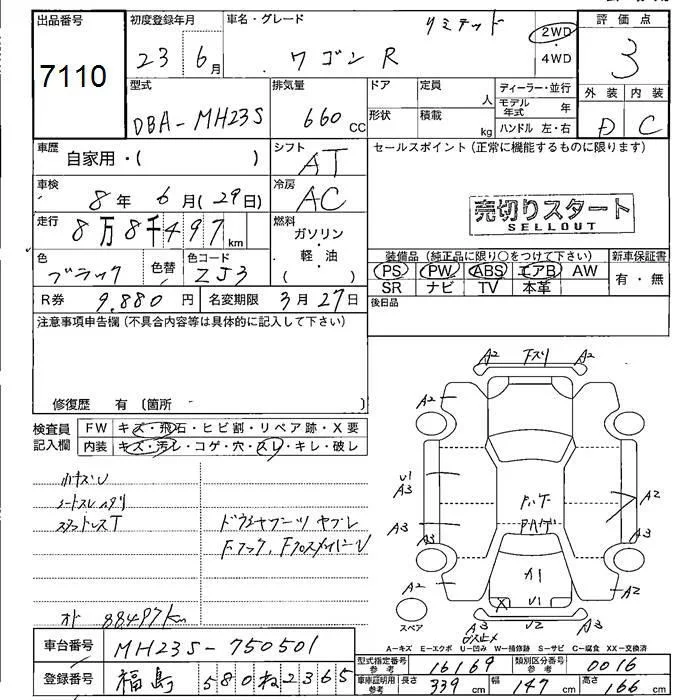 出品番号 初度登録年月 車名・グレード リミテッド 2WD 評価点
7110 23年 6月 ワゴンR ・4WD 3
型式 排気量 ドア 定員 人 ディーラー・並行 外装 内装
DBA-MH23S 660cc 形状 積載 kg モデル年式 年 D C
ハンドル 左・右
車歴 自家用・( ) シフト AT セールスポイント(正常に機能するものに限ります)
車検 8年 6月(29日) 冷房 AC
走行 8万8千497km 燃料 ガソリン・軽・油( ) 売切りスタート
SELLOUT
色 ブラック 色替 色コード ZJ3 装備品(純正品に限り○をつけて下さい) 新車保証書
PS PW ABS エアB AW 有・無
SR ナビ TV 本革
R券 9,880円 名変期限 3月27日 後日品
注意事項申告欄(不具合内容等は具体的に記入して下さい)
修復歴 有 〔箇所 〕
検査員記入欄 FW キズ・飛石・ヒビ割・リペア跡・X要
内装 キズ・汚レ・コゲ・穴・スレ・キレ・破レ
A2 Fスリ A2
A2 A2
U1
A3 A2
A3 A3 A3
A2 A1 A2
U1
スペア A3 U2 A3
シートスレ
スタットレスT ドライブシャフトブーツ ヤブレ
オド 88497km
A-キズ E-エクボ U-凹み W-補修跡 S-サビ C-腐食 XX-交換済
車台番号 MH23S-750501 型式指定番号参考 16169 類別区分番号参考 0016
登録番号 福島 580 ね 2365 車庫証明用参考 長さ 339cm 幅 147cm 高さ 166cm